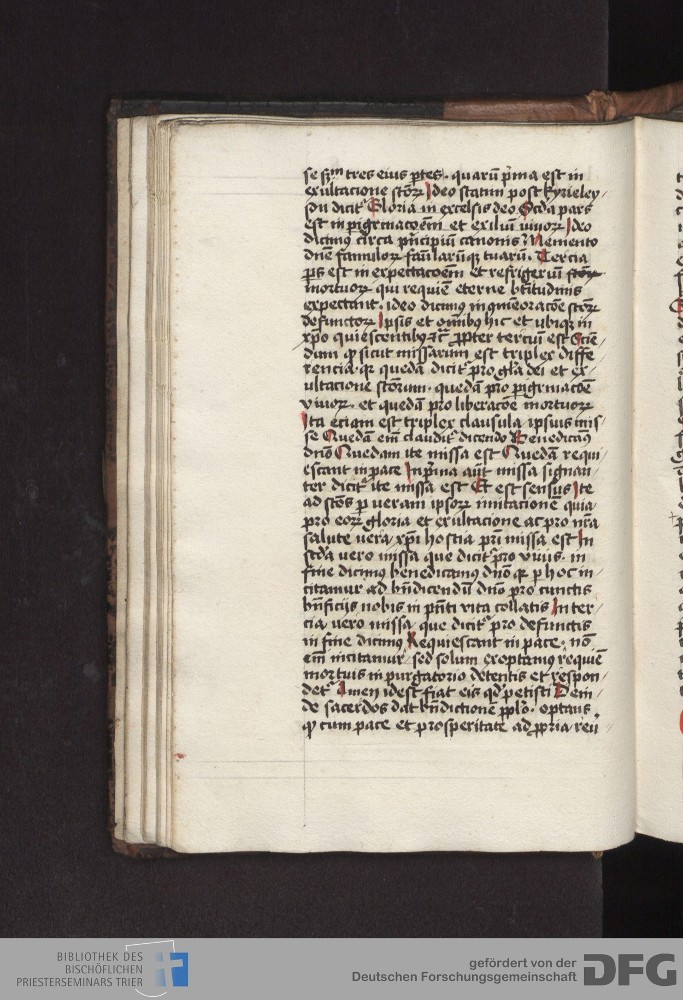 se scdm tres eius ptes. quarū pma est in
exultacione stoꝝ Ideo statim post kyrieley
son dicit Gloria in excelsis deo Scda pars
est in pigrinacoēm et exiliū viuoꝝ Ideo
dicimus circa pncipiū canonis Memento
dnē famuloꝝ famlarūqꝫ tuarū. Tercia
ps est in expectacoēm et refrigeriū stoꝝ
mortuoꝝ qui requiē eterne btitudinis
expectant. ideo dicimus in memoracōe stoꝝ
defunctoꝝ Ipsis et omibus hic et ubiqꝫ in
xpo quiescentibus ꝛc ppter terciū est Scien
dum qꝫ sicut missarum est triplex diffe
rencia. qꝛ quedā dicit pro gla dei et ex
ultacione stoꝝum. quedā pro pigrinacōe
viuoꝝ. et quedā pro liberacōe mortuoꝝ
Ita eciam est triplex clausula ipsius mis
se Quedā em claudit dicendo Benedicamus
dnō Quedam ite missa est Quedā requi
escant in pace In pma aūt missa signan
ter dicit ite missa est Et est sensus Ite
ad stos p veram ipsoꝝ imitacionē quia
pro eoꝝ gloria et exultacione ac pro nra
salute vera xpi hostia pri missa est In
scda vero missa que dicit pro viuis. in
fine dicimus benedicamus dnō qꝛ p hoc in
citamur ad bndicendū dnō pro cunctis
bnficijs nobis in pnti vita collatis In ter
cia vero missa que dicit pro defunctis
in fine dicimus Requiescant in pace. nō
em incitamur sed solum exoptamus requiē
mortuis in purgatorio detentis et respon
det Amen idest fiat eis qd petisti Dein
de sacerdos dat bndictionē pplo. optans
qꝫ cum pace et prosperitate ad ppria reū
BIBLIOTHEK DES
BISCHÖFLICHEN
PRIESTERSEMINARS TRIER
gefördert von der
Deutschen Forschungsgemeinschaft
DFG